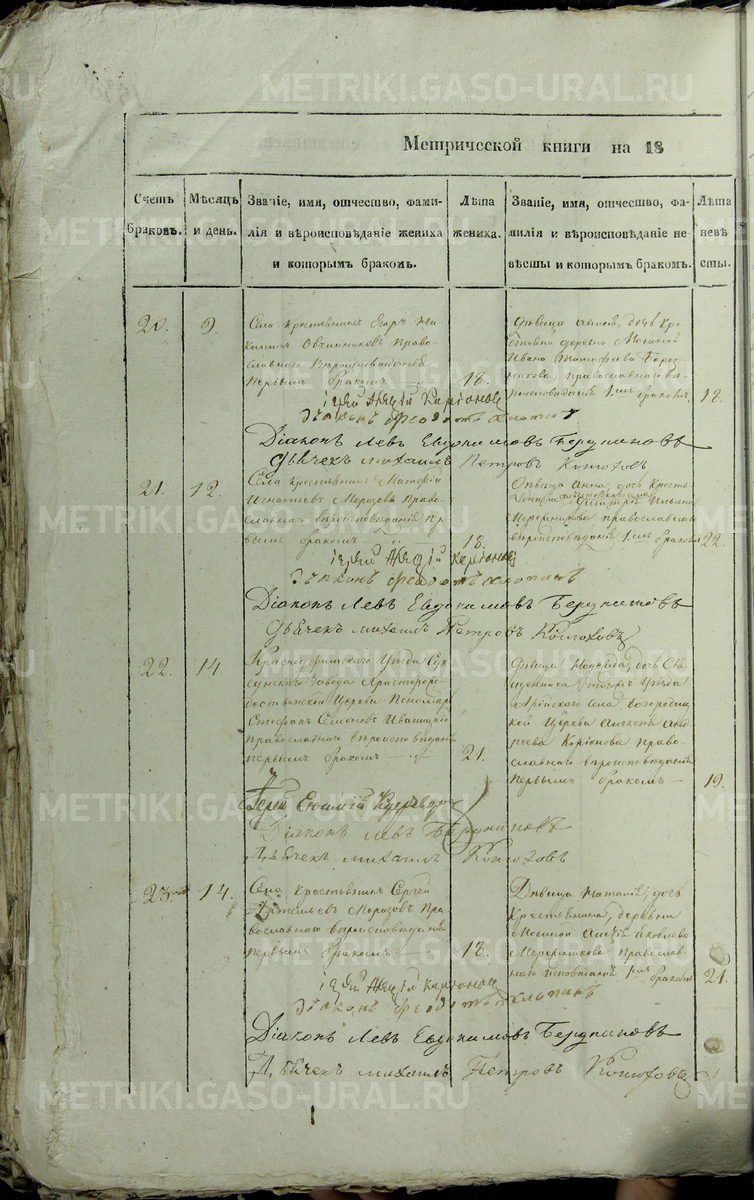 Метрической книги на 18
Счетъ браковъ.
Мѣсяцъ и день.
Званіе, имя, отчество, фами-
лія и вѣроисповѣданіе жениха
и которымъ бракомъ.
Лѣта
жениха.
Званіе, имя, отчество, фа-
милія и вѣроисповѣданіе не-
вѣсты и которымъ бракомъ.
Лѣта
невѣ
сты.
20.
9.
Села крестьянинъ Егоръ Ни-
китинъ Овчинниковъ Право-
славнаго Вѣроисповѣданія
первымъ бракомъ
18.
Дѣвица дочь Кре-
стьянина деревни
Ивана Тимофеева
православнаго вѣ-
роисповѣданія 1мъ бракомъ
18.
Іерей
Діаконъ Федотъ Хлопинъ
Діаконъ Левъ Евдокимовъ Бердниковъ
Дьячекъ Михаилъ Петровъ Конюховъ
21.
12.
Села крестьянинъ
Игнатьевъ Морозовъ Право-
славнаго вѣроисповѣданія пер-
вымъ бракомъ
18.
Дѣвица Анна, дочь Кресть-
Дмитрія Ильина
православнаго
вѣроисповѣданія 1мъ бракомъ
22.
Іерей
Діаконъ Федотъ Хлопинъ
Діаконъ Левъ Евдокимовъ Бердниковъ
Дьячекъ Михаилъ Петровъ Конюховъ
22.
14.
Красноуфимскаго Уѣзда Сук-
сунскаго Завода Христорож-
дественской Церкви Пономарь
Стефанъ Семеновъ Иваницкій
православнаго вѣроисповѣданія
первымъ бракомъ
21.
Дѣвица дочь Свя-
щенника Уѣзда
села Богородиц-
кой Церкви Алексѣя Анд-
реева Каріонова Право-
славнаго вѣроисповѣданія
первымъ бракомъ
19.
Іерей
Діаконъ Левъ Бердниковъ
Дьячекъ Михаилъ Конюховъ
23.
14.
Села крестьянинъ Сергей
Артемьевъ Морозовъ Пра-
вославнаго вѣроисповѣданія
первымъ бракомъ
18.
Дѣвица Наталія, дочь
Крестьянина, деревни
Яковлева
Православ-
наго исповѣданія 1мъ бракомъ
21.
Іерей
Діаконъ Федотъ Хлопинъ
Діаконъ Левъ Евдокимовъ Бердниковъ
Дьячекъ Михаилъ Петровъ Конюховъ
METRIKI.GASO-URAL.RU